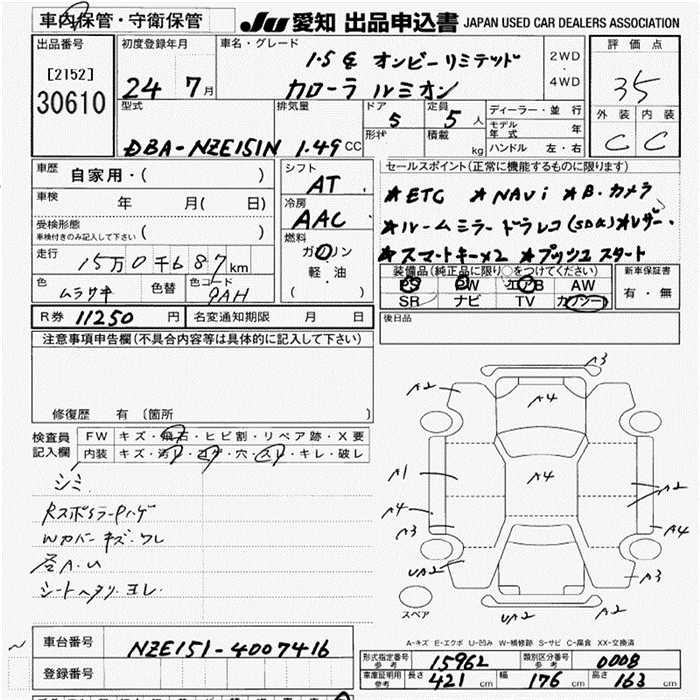 車内保管・守衛保管
JU 愛知 出品申込書 JAPAN USED CAR DEALERS ASSOCIATION
出品番号
[2152]
30610
初度登録年月
24 7月
車名・グレード
1.5G オンビーリミテッド
カローラ ルミオン
2WD
・
4WD
評価点
35
外装 内装
C C
型式
DBA-NZE151N
排気量
1.49 CC
ドア
5
形状
定員
5人
積載 kg
ディーラー・並行
モデル年式 年
ハンドル 左・右
車歴
自家用・( )
車検
年 月( 日)
受検形態
車検付きのみ記入して下さい ( )
走行
15万0千687km
色
ムラサキ
色替
色コード
9AH
シフト
AT
冷房
AAC
燃料
ガソリン
軽・油
( )
セールスポイント(正常に機能するものに限ります)
★ETC ★NAVi ★B.カメラ
★ルームミラードラレコ(SD欠)★レザー.
★スマートキー×2 ★プッシュスタート
装備品(純正品に限り○をつけてください)
PS PW エアB AW
SR ナビ TV カワシート
新車保証書
有・無
R券 11250 円
名変通知期限 月 日
後日品
注意事項申告欄(不具合内容等は具体的に記入して下さい)
修復歴 有〔箇所 〕
検査員記入欄
FW キズ・飛石・ヒビ割・リペア跡・X要
内装 キズ・汚レ・コゲ・穴・スレ・キレ・破レ
シミ
Wカバーキズ.ワレ
シートヘタリ.ヨレ
A3
A2
A4
A1
A4
A4
A3
A2
A4
UA2
A3
UA2
A2
スペア
A-キズ E-エクボ U-凹み W-補修跡 S-サビ C-腐食 XX-交換済
車台番号
NZE151-4007416
登録番号
形式指定番号参考
15962
類別区分番号参考
0008
車庫証明用参考
長さ 421 cm 幅 176 cm 高さ 163 cm